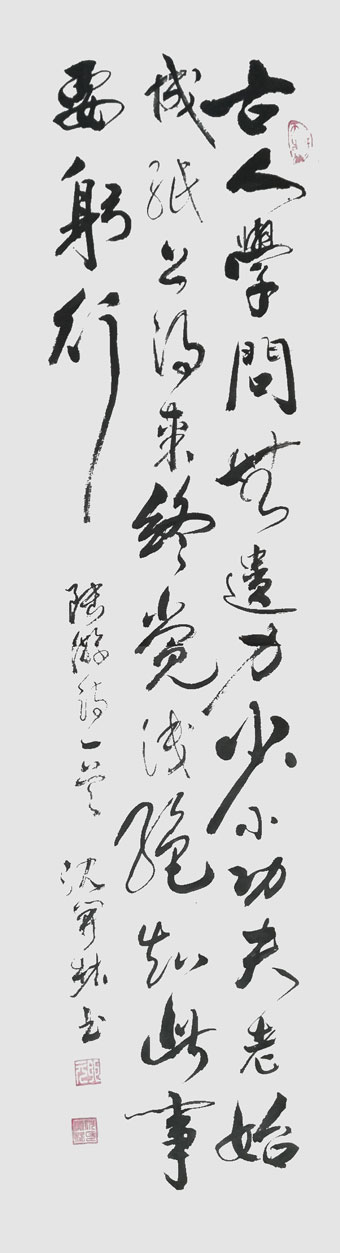 古人學問無遺力少小功夫老始
成紙上得来終觉淺絕知此事
要躬行
陸游詩一首 沈 林书